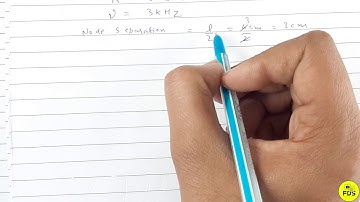 ν = 3kHz
Node Separation = ℓ/2 = 6cm/2 = 3cm
FDS